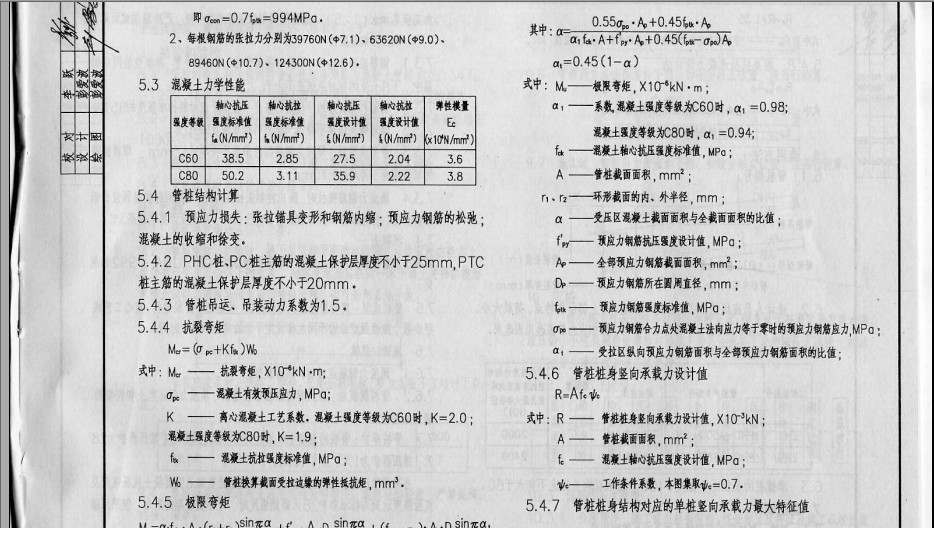 即 σcon=0.7fptk=994MPa。
2、每根钢筋的张拉力分别为39760N(Φ7.1)、63620N(Φ9.0)、
89460N(Φ10.7)、124300N(Φ12.6)。
5.3 混凝土力学性能
强度等级 轴心抗压强度标准值 fck(N/mm²) 轴心抗拉强度标准值 ftk(N/mm²) 轴心抗压强度设计值 fc(N/mm²) 轴心抗拉强度设计值 ft(N/mm²) 弹性模量 Ec (x10⁴N/mm²)
C60 38.5 2.85 27.5 2.04 3.6
C80 50.2 3.11 35.9 2.22 3.8
5.4 管桩结构计算
5.4.1 预应力损失：张拉锚具变形和钢筋内缩；预应力钢筋的松弛；
混凝土的收缩和徐变。
5.4.2 PHC桩、PC桩主筋的混凝土保护层厚度不小于25mm，PTC
桩主筋的混凝土保护层厚度不小于20mm。
5.4.3 管桩吊运、吊装动力系数为1.5。
5.4.4 抗裂弯矩
Mcr=(σpc+Kftk)W₀
式中：Mcr —— 抗裂弯矩，X10⁻⁶kN·m；
σpc —— 混凝土有效预压应力，MPa；
K —— 离心混凝土工艺系数。混凝土强度等级为C60时，K=2.0；
混凝土强度等级为C80时，K=1.9；
ftk —— 混凝土抗拉强度标准值，MPa；
W₀ —— 管桩换算截面受拉边缘的弹性抵抗矩，mm³。
5.4.5 极限弯矩
其中：α=(0.55σpo·Ap+0.45fptk·Ap)/(α₁fck·A+f'py·Ap+0.45(fptk-σpo)Ap)
αt=0.45(1-α)
式中：Mu —— 极限弯矩，X10⁻⁶kN·m；
α₁ —— 系数，混凝土强度等级为C60时，α₁=0.98；
混凝土强度等级为C80时，α₁=0.94；
fck —— 混凝土轴心抗压强度标准值，MPa；
A —— 管桩截面面积，mm²；
r₁、r₂ —— 环形截面的内、外半径，mm；
α —— 受压区混凝土截面面积与全截面面积的比值；
f'py —— 预应力钢筋抗压强度设计值，MPa；
Ap —— 全部预应力钢筋截面面积，mm²；
Dp —— 预应力钢筋所在圆周直径，mm；
fptk —— 预应力钢筋强度标准值，MPa；
σpo —— 预应力钢筋合力点处混凝土法向应力等于零时的预应力钢筋应力，MPa；
αt —— 受拉区纵向预应力钢筋面积与全部预应力钢筋面积的比值；
5.4.6 管桩桩身竖向承载力设计值
R=Afcψc
式中：R —— 管桩桩身竖向承载力设计值，X10⁻³kN；
A —— 管桩截面面积，mm²；
fc —— 混凝土轴心抗压强度设计值，MPa；
ψc —— 工作条件系数，本图集取ψc=0.7。
5.4.7 管桩桩身结构对应的单桩竖向承载力最大特征值